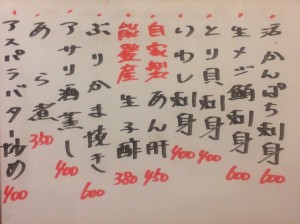 活かんぱち刺身 600
生メジ鮪刺身 600
とり貝刺身 400
いわし刺身 400
自家製あん肝 450
能登産生子酢 380
ぶりかま焼き 600
アサリ酒蒸し 400
あら煮 350
アスパラバター炒め 400